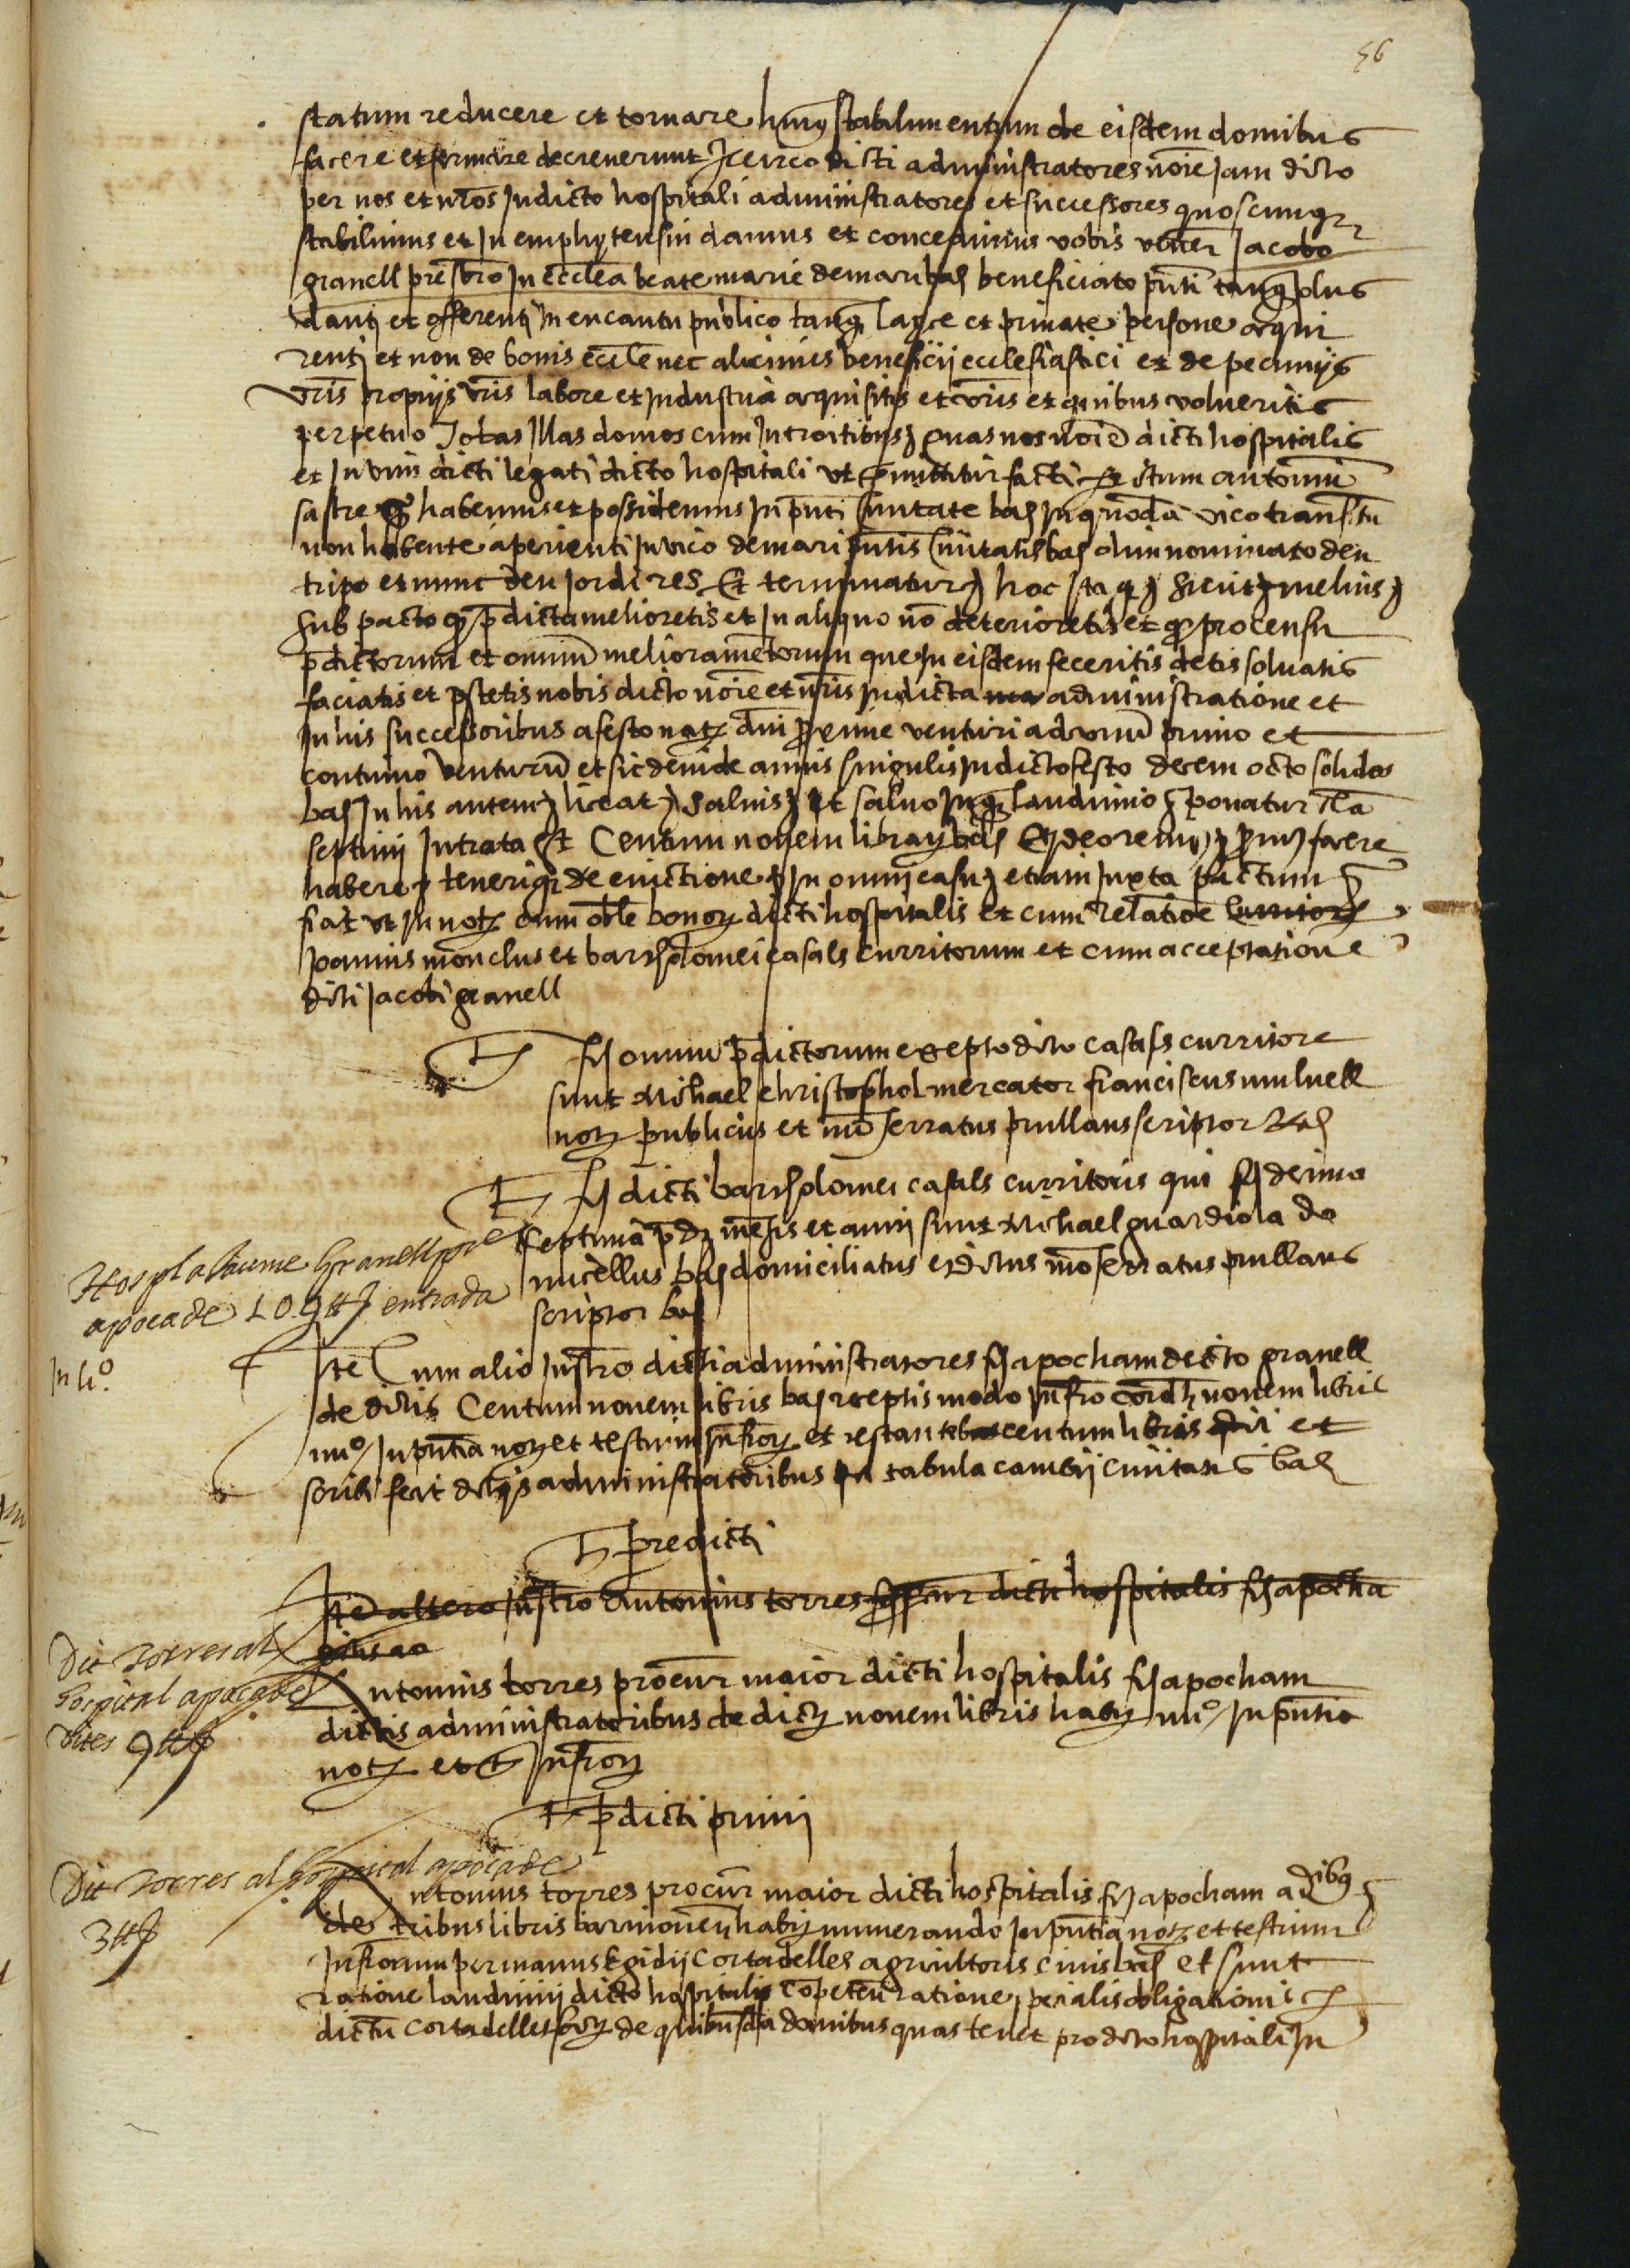 56
statum reducere et tornare hmōi stabilimentum de eisdem domibus
facere et firmare decreverunt Jccirco dicti administratores noīe Jam dicto
per nos et nr̄os Jn dicto hospitali administratores et successores quoscunqȝ
stabilimus et Jn emphyteusim damus et concedimus vobis vener Jacobo
granell presbr̄o Jn eccl̄ea beate marie de mari baȝ beneficiato pn̄ti tanqȝ plus
danti et offerenti Jn encantu publico tanqȝ layce et private persone acqui
renti et non de bonis eccl̄e nec alicuius beneficij ecclesiastici et de pecunijs
vr̄is proprijs vr̄is labore et Jndustria acquisitis et vr̄is et quibus volueritis
perpetuo Totas Jllas domos cum Jntroitibus quas nos noīe dicti hospitalis
et Jn vim dicti legati dicto hospitali ut p̄mittitur facti per dictum antonium
sastre habemus et possidemus Jn pn̄ti civitate baȝ Jn quodā vico transitū
non habente aperienti Jn vico de mari pn̄tis civitatis baȝ olim nominato den
tripo et nunc den Jordi res Et terminatur hoc Jta qȝ sicut melius
sub pacto qȝ p̄dicta melioretis et Jn aliquo nō deterioretis et pro censu
p̄dictorum et omniū melioramētorum que Jn eisdem feceritis detis solvatis
faciatis et p̄stetis nobis dicto noīe et nr̄is Jn dicta administratione et
Jn his successoribus a festo natȝ dn̄i proxime venturi ad unū primo et
continuo venturū et sic deinde annis singulis Jn dicto festo decem octo solidos
baȝ Jn his autem liceat salvis et salvo Jurȝ laudimio ponatur cl̄a
septimi Jntrata est Centum novem libraȝ baȝ facere
habere tenerique de evictione Jn omni casu etiam Juxta pactum
fiat ut Jn notȝ cum obl̄e bonoȝ dicti hospitalis et cum relatiōe curritorȝ
Joannis monclus et bartholomei casals curritorum et cum acceptatione
dicti Jacobi granell
T fȝ omniū p̄dictorum exepto dicto casals curritore
sunt Michael christophol mercator franciscus mulnell
notȝ publicus et mōserratus prullans scriptor baȝ
T fȝ dicti bartholomei casals curritoris qui fȝ decima
septima p̄dȝ mēsis et anni sunt Michael guardiola do
micellus baȝ domiciliatus et dictus mōserratus prullans
scriptor baȝ
Hospl a Jaume Granell pre
apoca de 109 ℔ entrada
Jn li°.
Jtē Cum alio Jnstr̄o dicti administratores fȝ apocham dicto granell
de dictis Centum novem libris baȝ receptis modo Jnfr̄o vidȝ novem libris
nu° Jn pn̄tia notȝ et testium Jnfroȝ et restantes centum libris dici et
scribi fecit dictis administratoribus Jn tabula cambij civitatis baȝ
T predicti
Jtē altero Jnstr̄o Antonius torres procur dicti hospitalis fȝ apochā
dictis ad
Dit torres al
Hospital apoca de
dites 9 ℔
Antonius torres procur̄ maior dicti hospitalis fȝ apocham
dictis administratoribus de dictȝ novem libris habȝ nu° Jn pn̄tia
notȝ et t Jnfroȝ
T p̄dicti primi
Dit torres al hospital apoca de
3 ℔
Antonius torres procur̄ maior dicti hospitalis fȝ apocham adibȝ
de tribus libris barcinonenȝ habȝ numerando Jn pn̄tia notȝ et testium
Jnfrorum per manus Egidij Cortadelles agricultoris civis baȝ et sunt
ratione laudimij dicto hospitalis cōpetēn ratione specialis obligationis
dictū Cortadelles de quibusdā domibus quas tenet pro dicto hospitali Jn